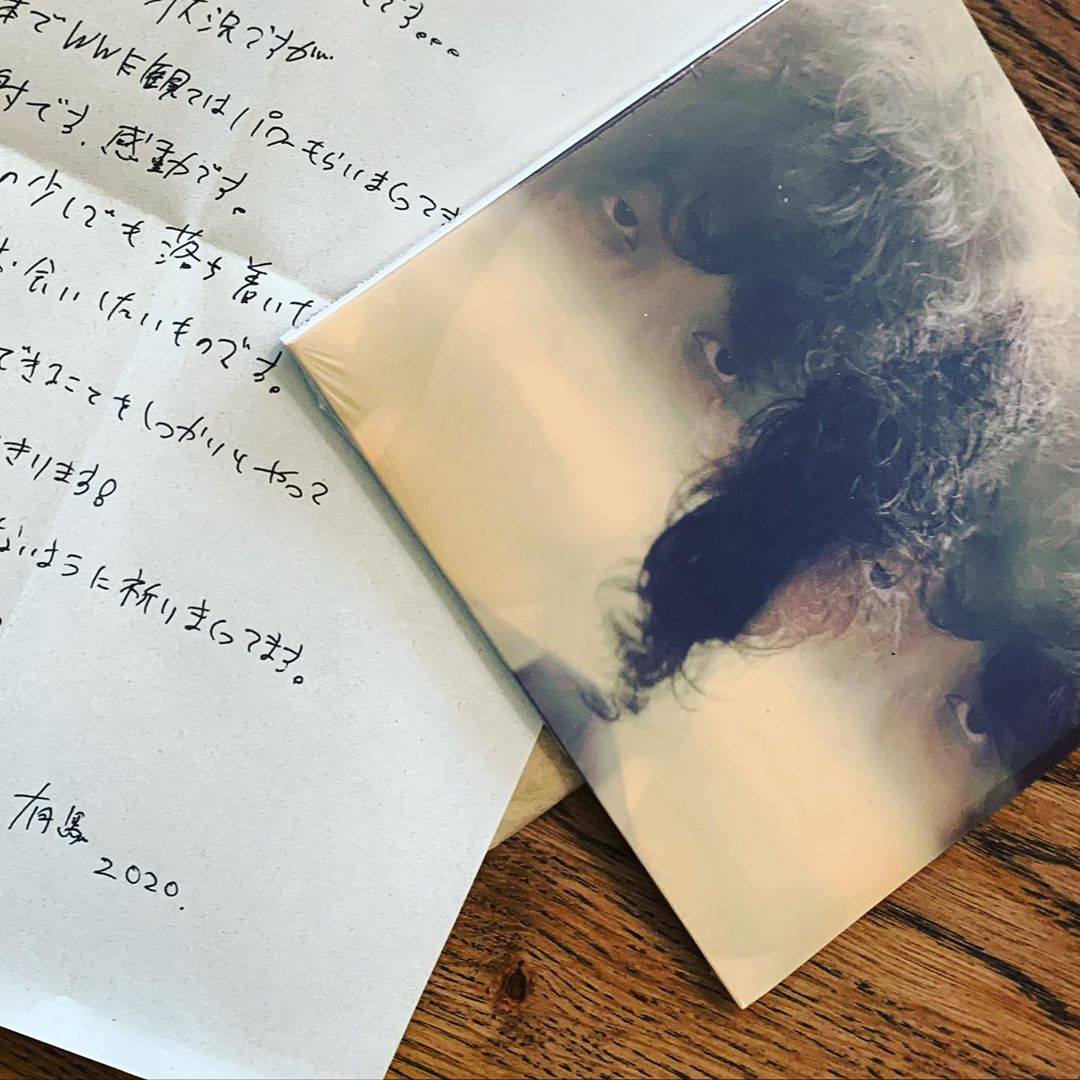 です...
状況ですが...
までWWE観てはパワーもらいまくってま
射です。感動です。
少しでも落ち着いた
会いしたいものです。
できることをしっかりとやって
きります!
ないように祈りまくってます。
有馬
2020.